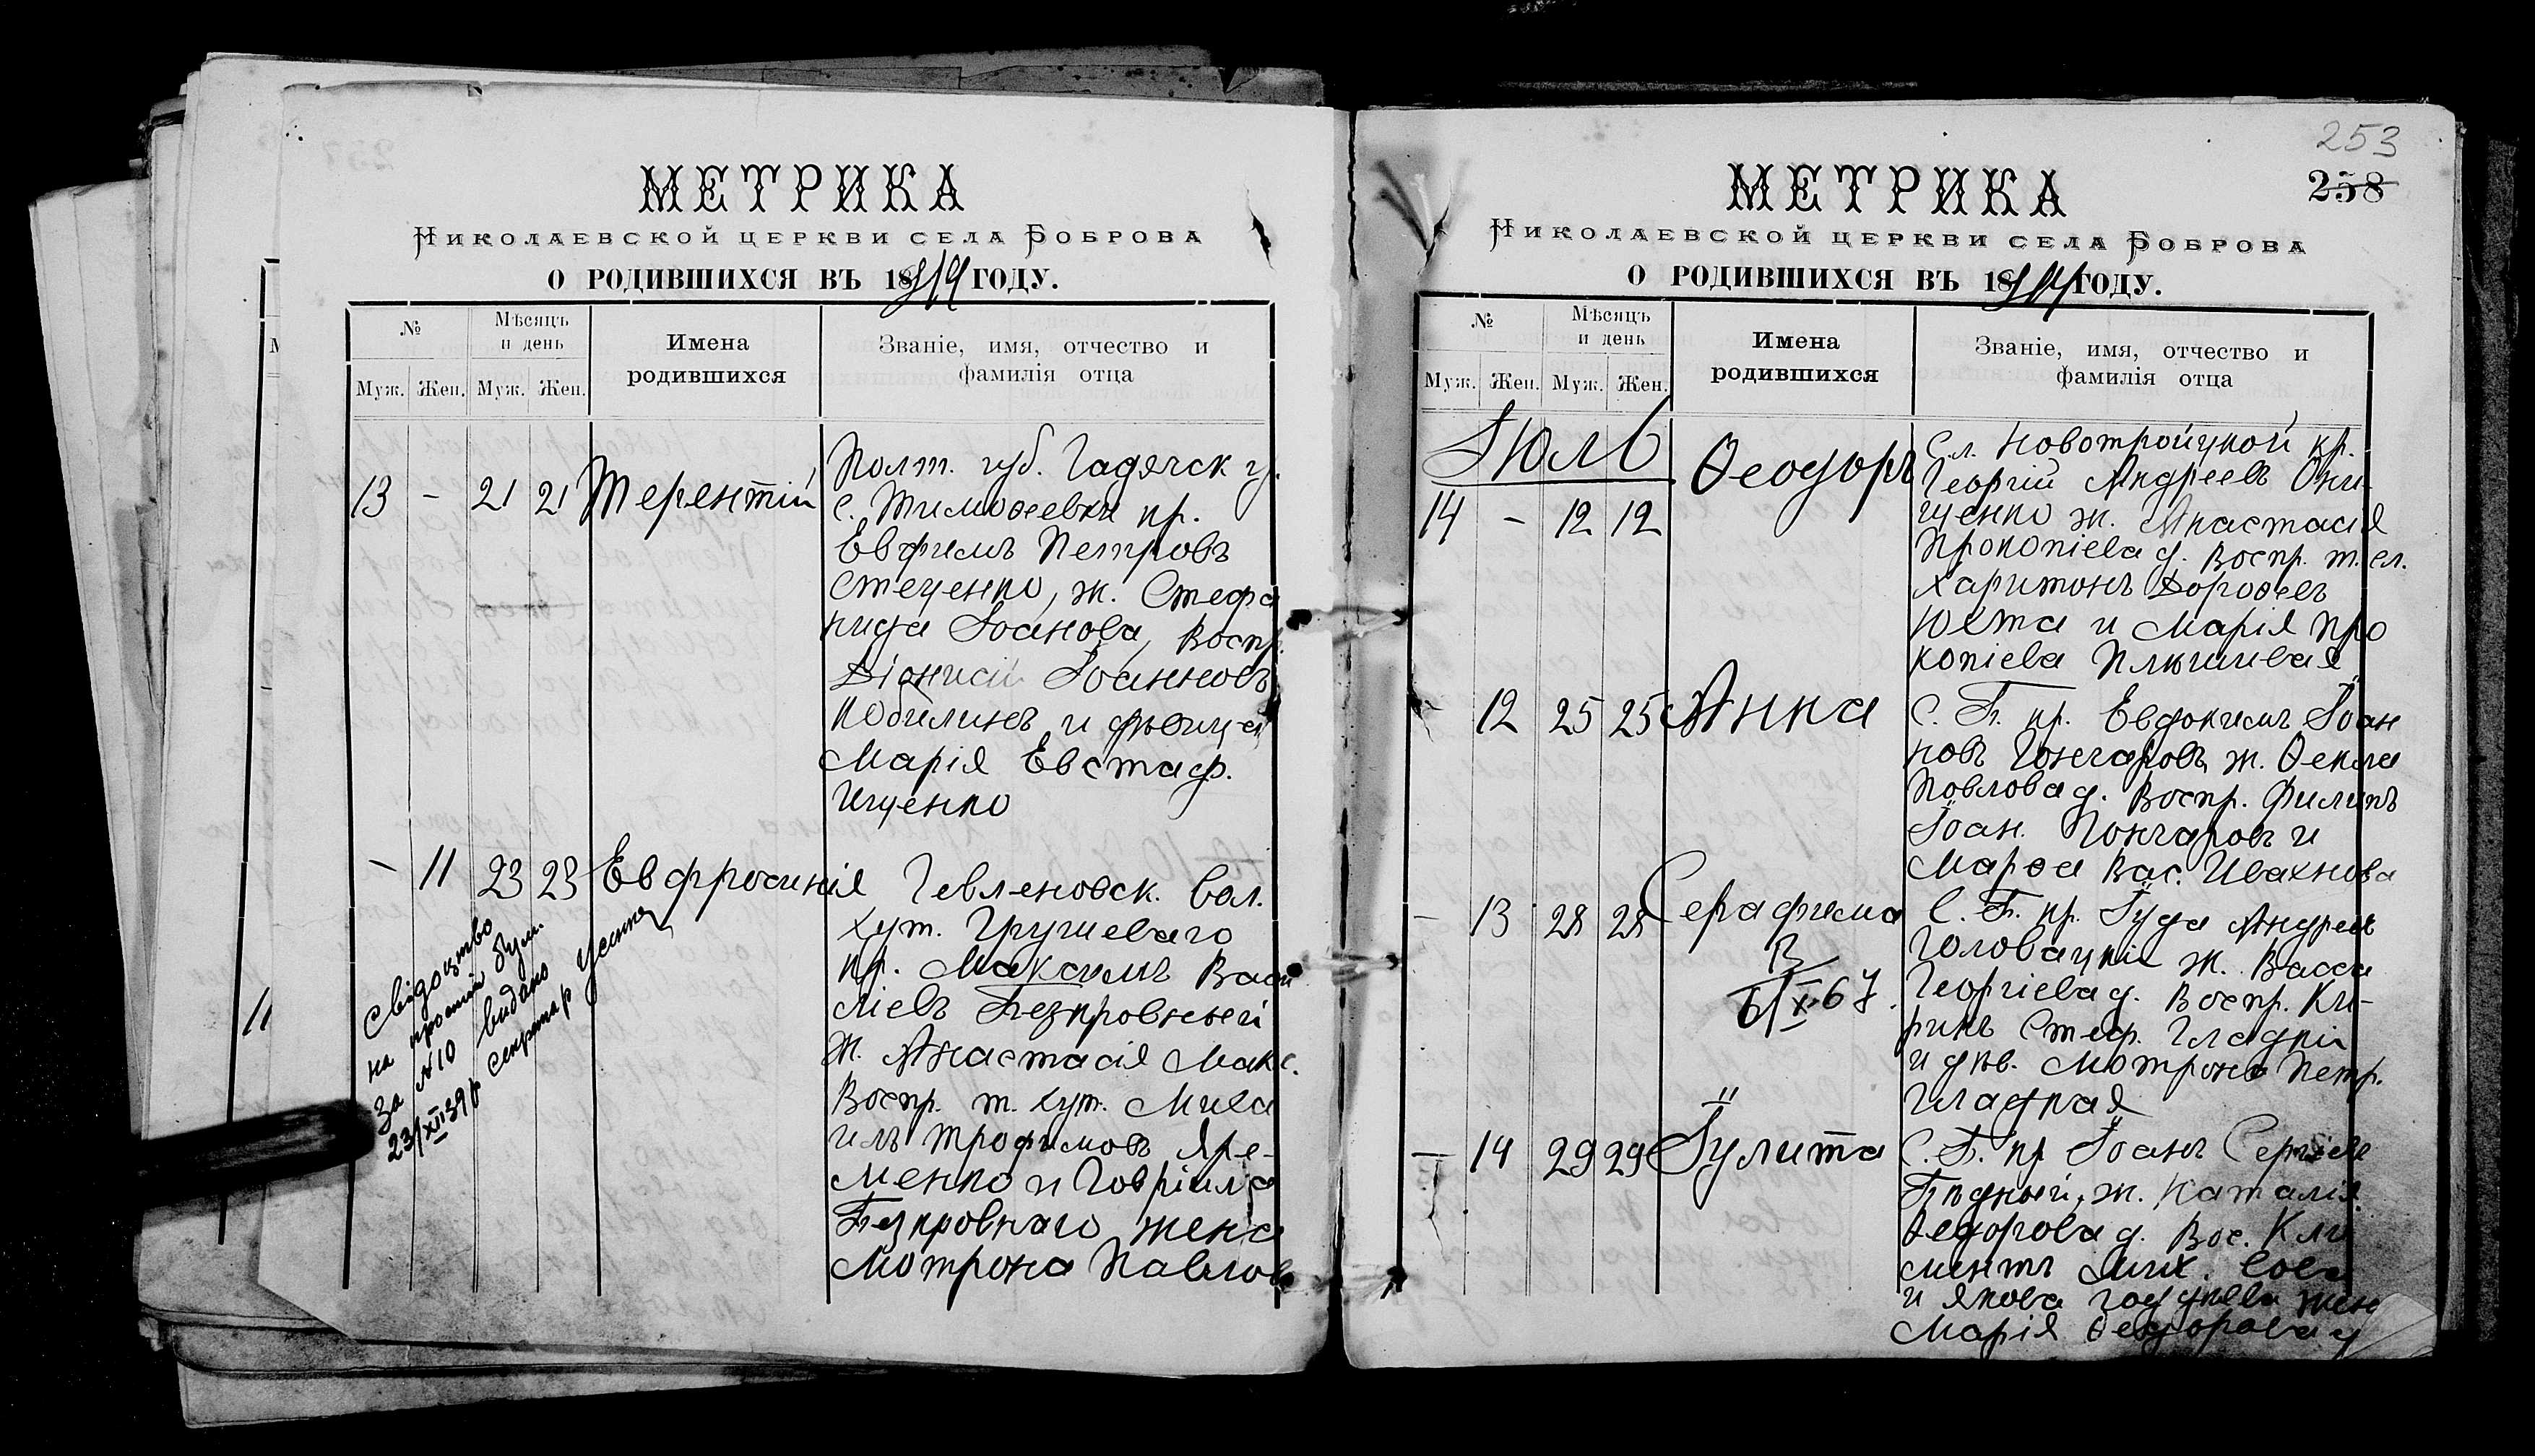 МЕТРИКА
Николаевской церкви села Боброва
О РОДИВШИХСЯ ВЪ 1914 ГОДУ.
№
Мѣсяцъ и день
Имена родившихся
Званіе, имя, отчество и фамилія отца
Муж. Жен. Муж. Жен.
13 - 21 21 Терентій
Полт. губ. Гадячск у.
с. Тимоѳеевки кр.
Евфимъ Петровъ
Стеценко, ж. Стефа
нида Іоанова, Воспр.
Діонисій Іоанновъ
Кобилинъ и дѣвица
Марія Евстаф.
Ищенко
- 11 23 23 Евфросинія
Чевленовск. Вол.
хут. Грушеваго
кр. Максимъ Васи
ліевъ Безкровный
ж. Анастасія Макс.
Воспр. т. хут. Миха
илъ Трофимовъ Яре-
менко и Гавріила
Безкровнаго жена
Мотрона Павлов
Свідоцтво
на простій бум.
За №10 видано
23/XII 39 р секретар
253
258
МЕТРИКА
Николаевской церкви села Боброва
О РОДИВШИХСЯ ВЪ 1914 ГОДУ.
№
Мѣсяцъ и день
Имена родившихся
Званіе, имя, отчество и фамилія отца
Муж. Жен. Муж. Жен.
Іюль
14 - 12 12 Ѳеодоръ
Сл. Новотроицкой кр.
Георгій Андреевъ Они-
щенко ж. Анастасія
Прокопіева д. Воспр. т. сл.
Харитонъ Дороѳеевъ
Юхта и Марія Про
копіева
- 12 25 25 Анна
С. Б. кр. Евдокимъ Іоан
новъ Гончаровъ, ж. Ѳекла
Павлова д. Воспр. Филипъ
Іоан. Гончаровъ и
Марѳа Вас. Ивахнова
- 13 28 28 Серафима
С. Б. кр. Іуда Андреевъ
Головацкій ж. Васса
Георгіева д. Воспр. Ки-
рикъ Стеф. Гладкій
и дѣв. Мотрона Петр.
Гладкая
В
6/X 67.
- 14 29 29 Іулита
С. Б. кр Іоанъ Сергіев
Бѣдный, ж. Наталія
Ѳедорова д. Вос. Кли
ментъ Мих. Сова
и Якова жен
Марія Ѳеодорова д